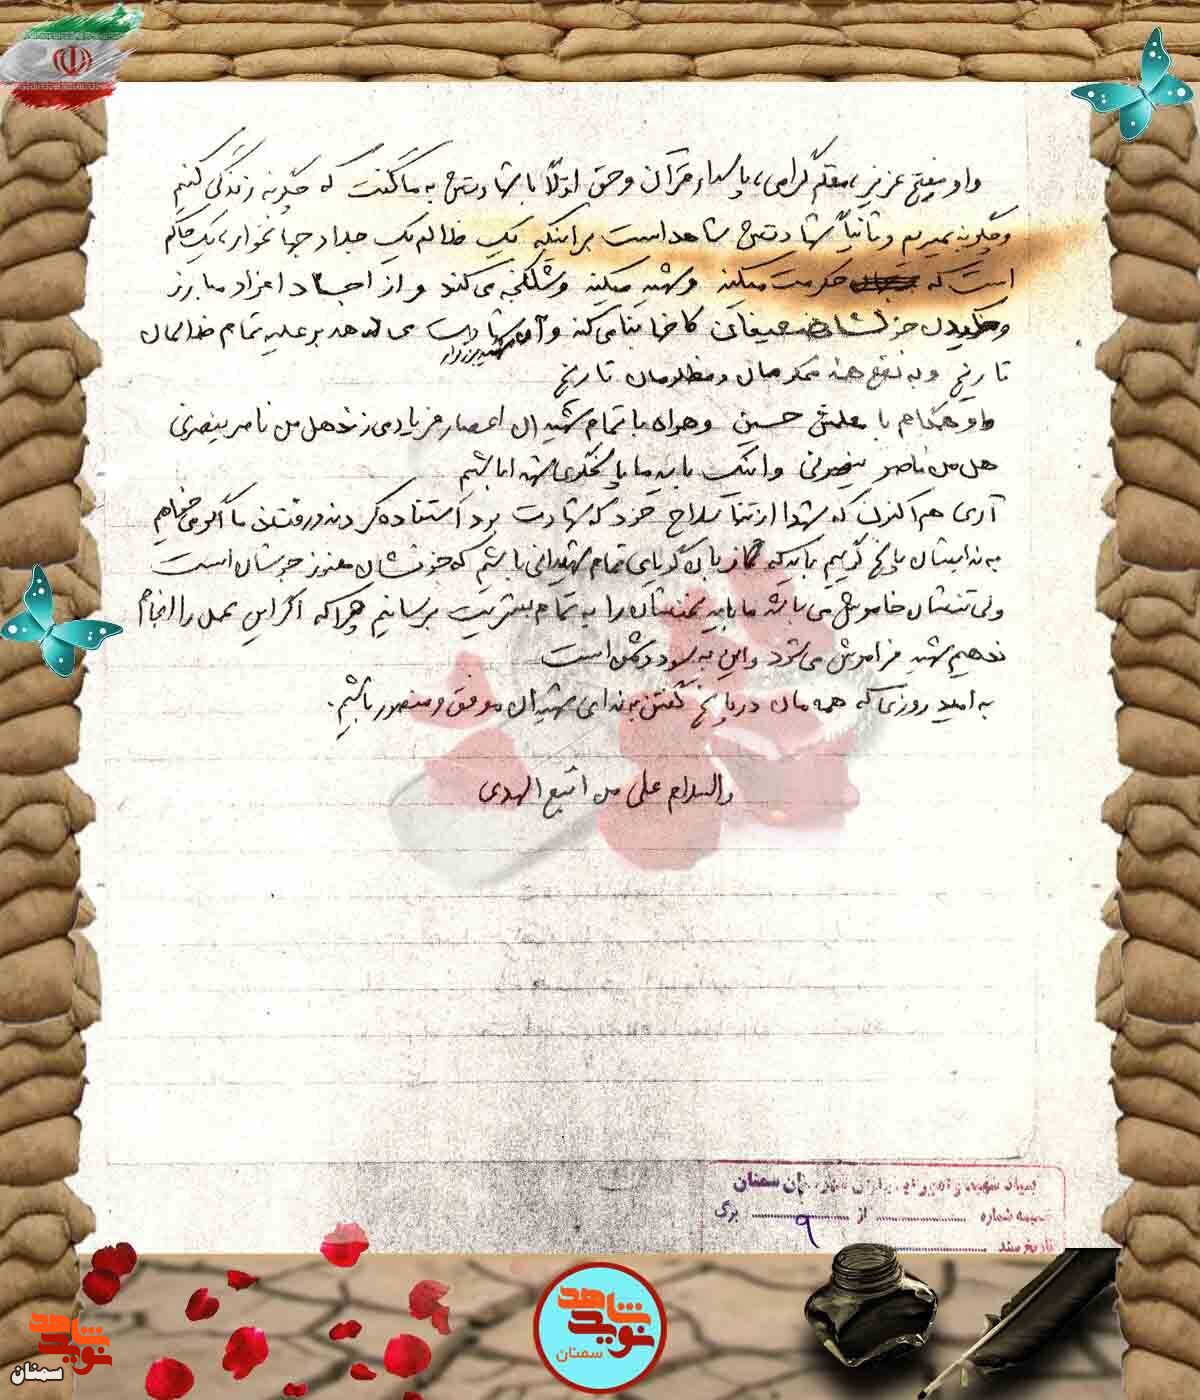 و او مفتح عزیز، معلم گرامی، پاسدار قرآن و حق اولاً با شهادتش به ما گفت که چگونه زندگی کنیم
و چگونه بمیریم و ثانیاً شهادتش شاهد است بر اینکه یک ظالم یک جلاد جهانخوار، یک حاکم
است که حکومت میکند و شهید میکند و شکنجه می کند و از اجساد افراد مبارز
و خون کاخها بنا می کند و آن شهادت می دهد بر علیه تمام ظالمان
تاریخ و به نفع همه محرومان و مظلومان تاریخ
و او هنگام با حسین و همراه با تمام شهیدان اعصار فریاد می زند هل من ناصر ینصرنی
هل من ناصر ینصرنی و اینک باید ما پاسخگوی شهدا باشیم
آری هم اکنون که شهدا از تنها سلاح خود که شهادت بود استفاده کردند و رفتند ما اگر می خواهیم
به ندایشان پاسخ گوییم باید که زبان گویای تمام شهیدانی باشیم که خونشان هنوز جوشان است
ولی تنشان خاموش می باشد ما باید سخنشان را به تمام بشریت برسانیم چرا که اگر این عمل را انجام
ندهیم شهید فراموش می شود و این به سود دشمن است
به امید روزی که همه مان در پاسخ گفتن به ندای شهیدان موفق و منصور باشیم.
والسلام علی من اتبع الهدی
بنیاد شهید و امور ایثارگران شهرستان سمنان
ضمیمه شماره ............ از ............ ۹ برگ
تاریخ سند ............
نوید شاهد
سمنان
نوید شاهد
سمنان